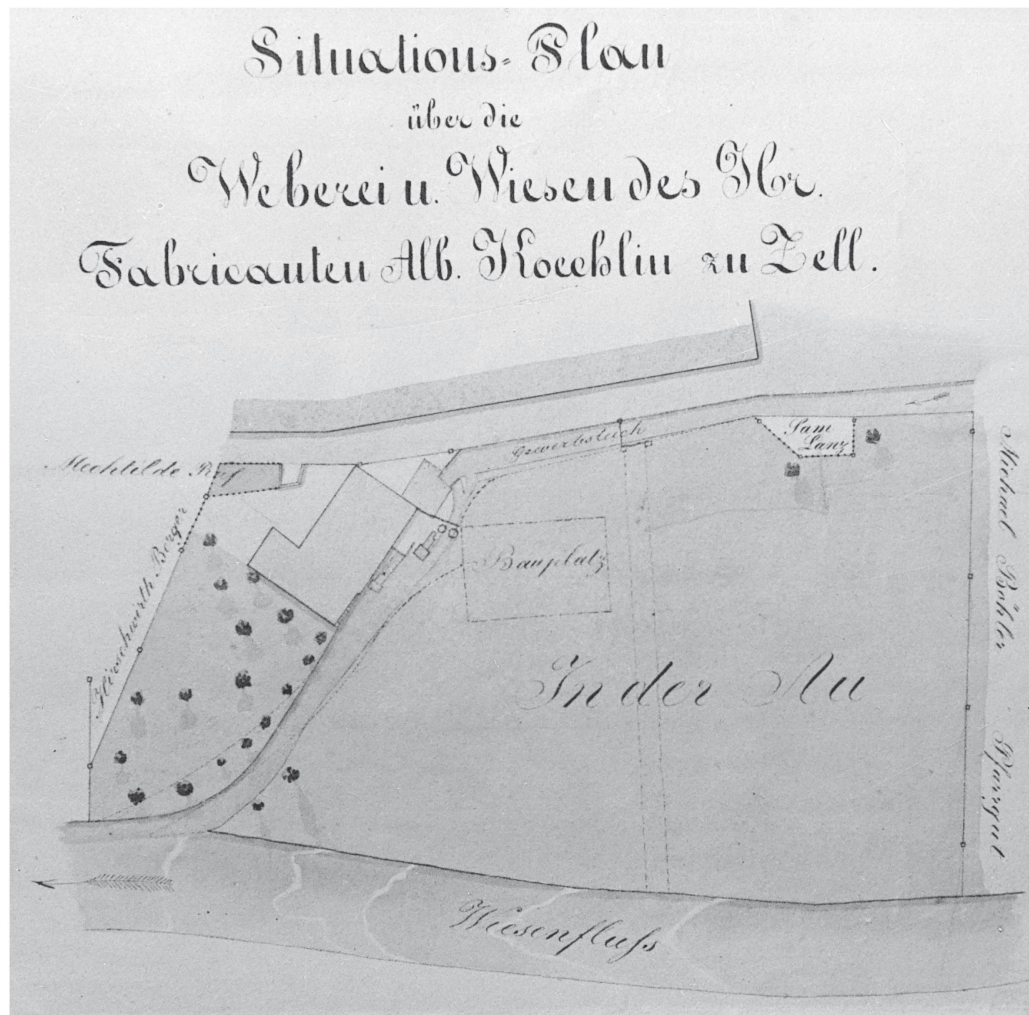 Situations-Plan
über die
Weberei u. Wiesen des Hr.
Fabricanten Alb. Koechlin zu Zell.
Gewerbsteich
Sam
Lanz
Mechtilde
Hirschwirth Berger
Bauplatz
In der Au
Michael Böhler
Pfarrgut
Wiesenfluſs